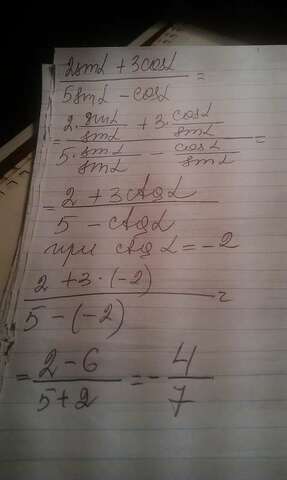 (2sinα + 3cosα)/(5sinα - cosα) =
= (2·sinα/sinα + 3·cosα/sinα)/(5·sinα/sinα - cosα/sinα) =
= (2 + 3ctgα)/(5 - ctgα)
при ctg α = -2
(2 + 3·(-2))/(5 - (-2)) =
= (2 - 6)/(5 + 2) = - 4/7